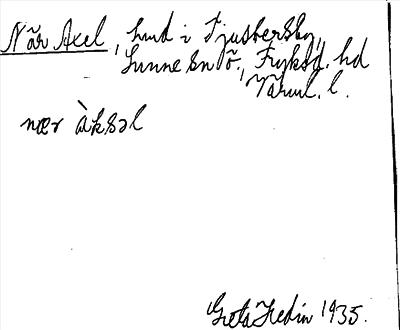 När Axel, hmd i Fjusbersby,
Sunne sn Ö., Fryksd. hd
Värml. l.
nær àksəl
Greta Hedin 1935.